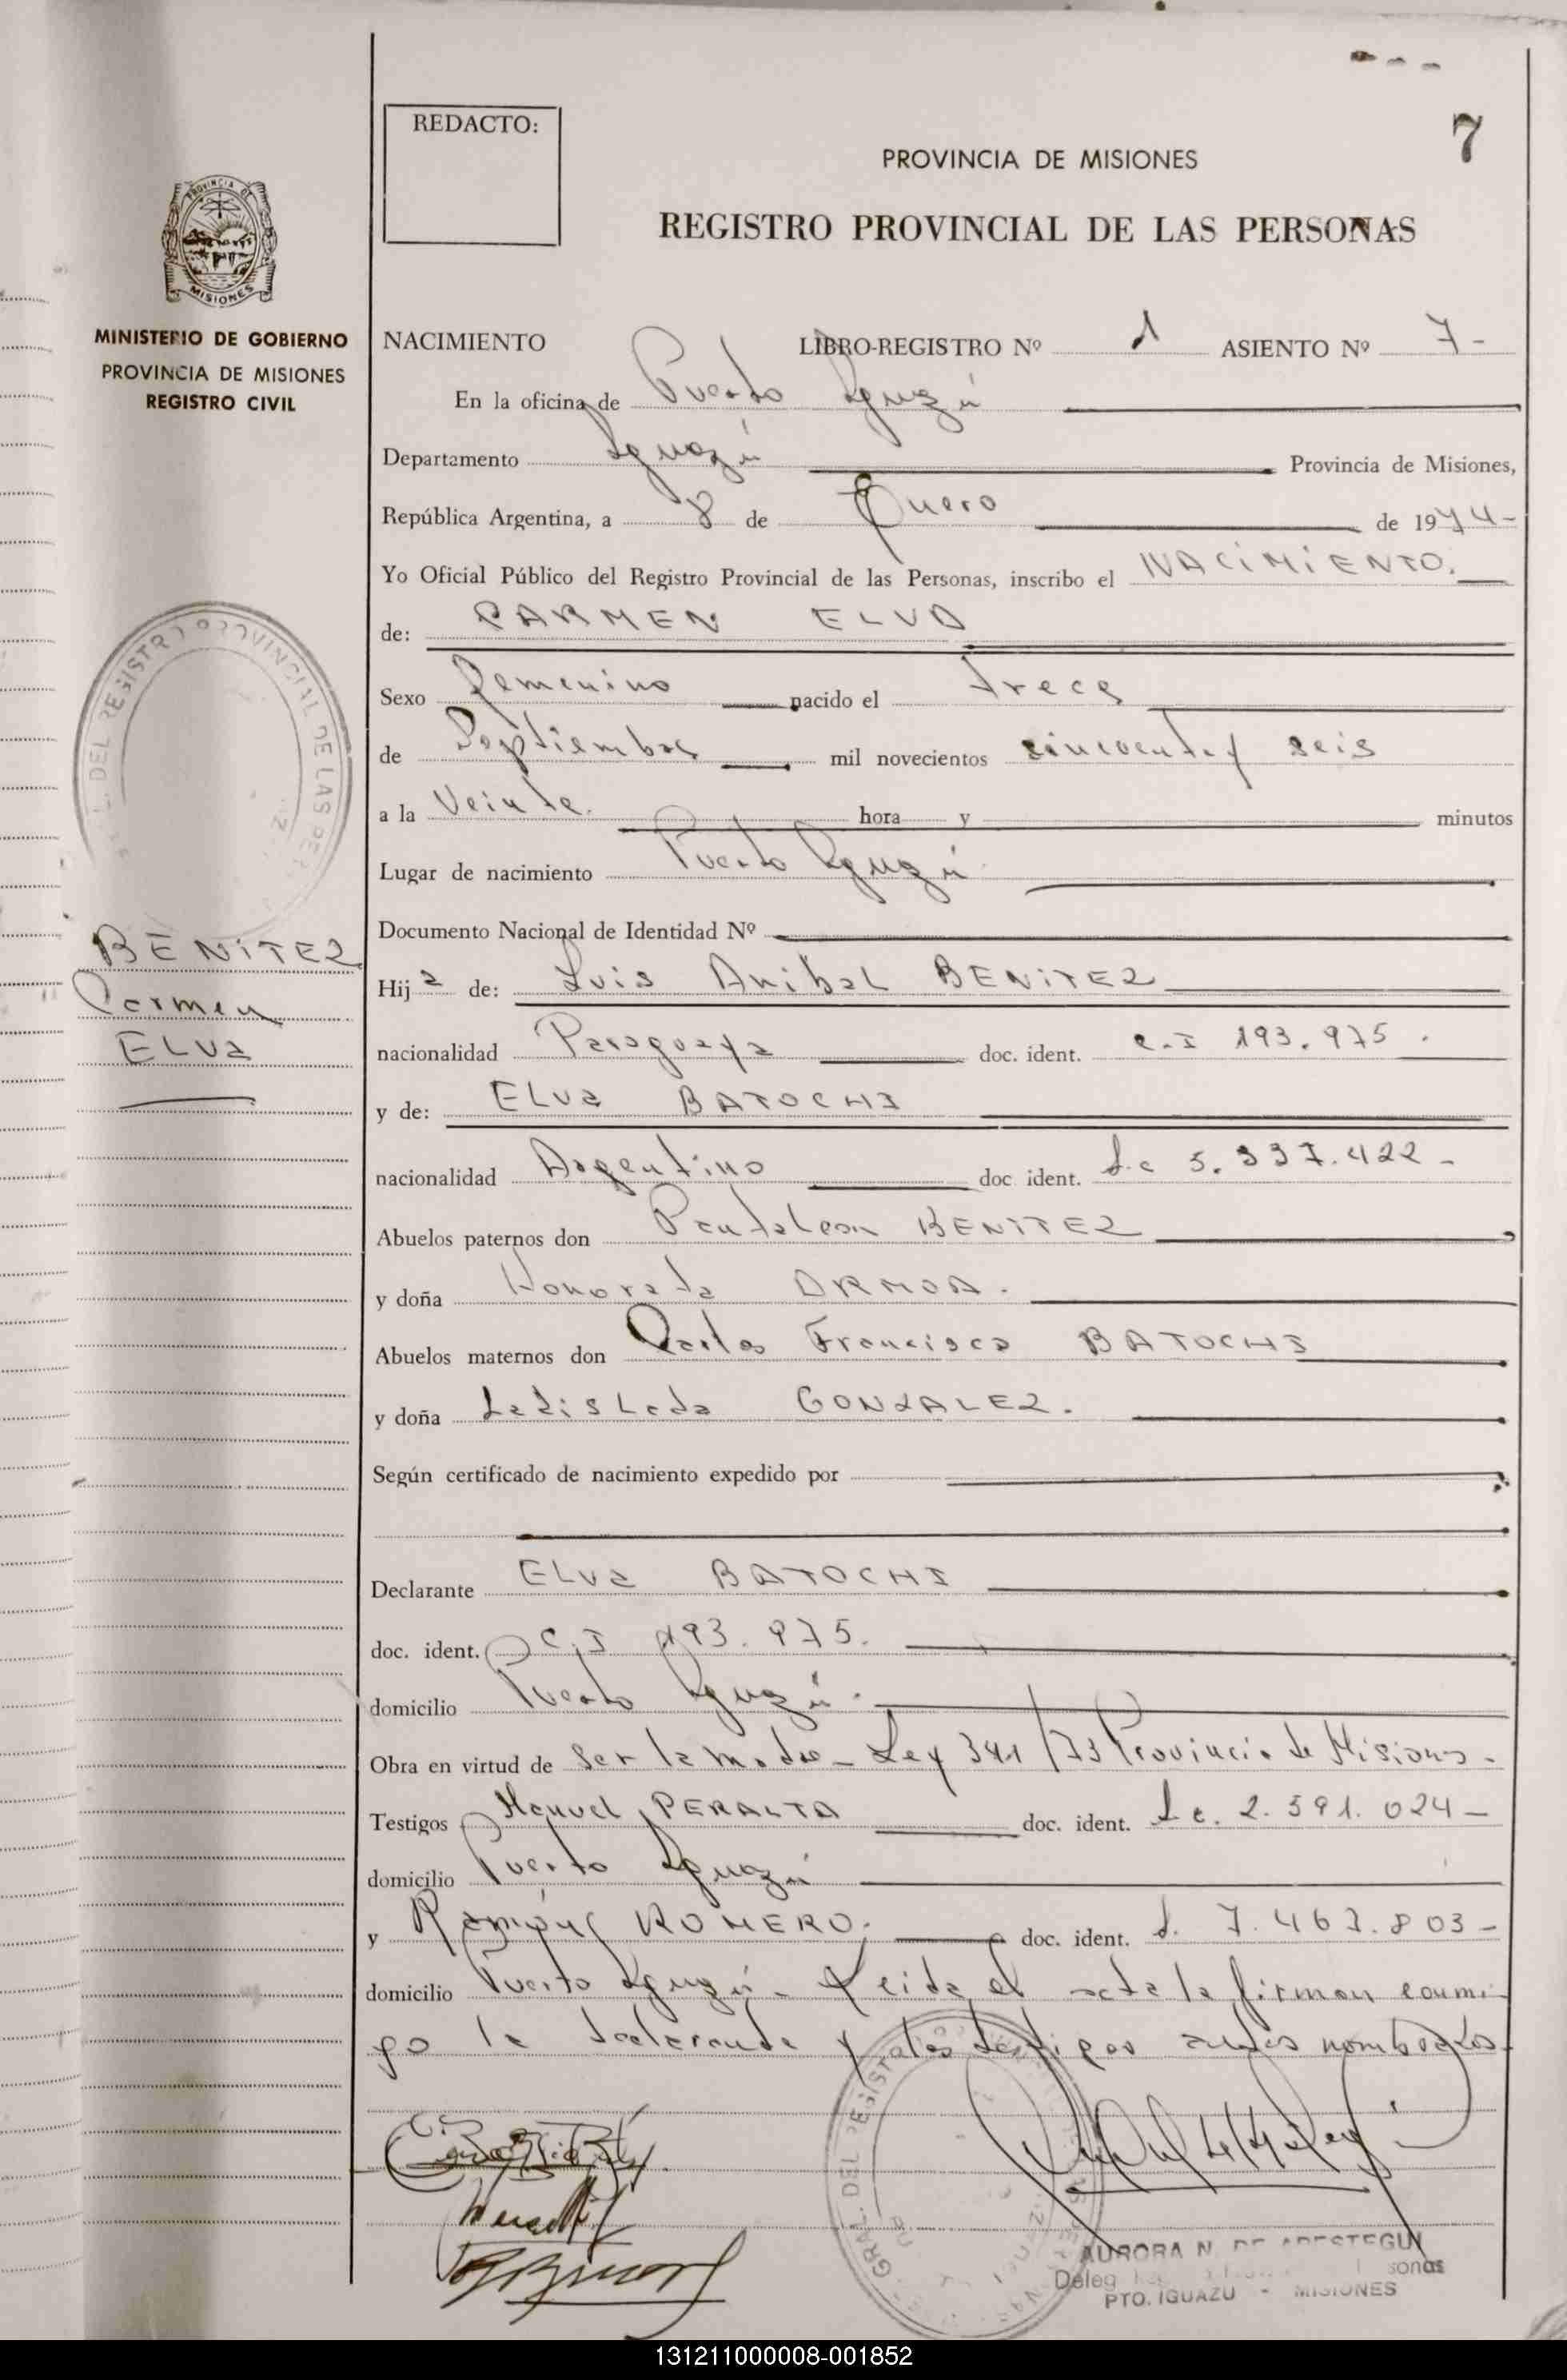 REDACTO:
7
PROVINCIA DE MISIONES
REGISTRO PROVINCIAL DE LAS PERSONAS
PROVINCIA DE
MISIONES
MINISTERIO DE GOBIERNO
PROVINCIA DE MISIONES
REGISTRO CIVIL
NACIMIENTO LIBRO-REGISTRO Nº 1 ASIENTO Nº 7-
En la oficina de Puerto Iguazú
Departamento Iguazú Provincia de Misiones,
República Argentina, a 8 de Enero de 1974-
Yo Oficial Público del Registro Provincial de las Personas, inscribo el NACIMIENTO.
de: CARMEN ELVA
Sexo femenino nacido el trece
de Septiembre mil novecientos cincuenta y seis
a la Veinte. hora y minutos
Lugar de nacimiento Puerto Iguazú
Documento Nacional de Identidad Nº
BENITEZ
Carmen
ELVa
Hija de: Luis Anibal BENITEZ
nacionalidad Paraguaya doc. ident. C.I 193.975.
y de: ELVa BATOCHI
nacionalidad Argentino doc. ident. L.c 5.337.422-
Abuelos paternos don Pantaleon BENITEZ
y doña Honorata ORMOA.
Abuelos maternos don Carlos Francisco BATOCHI
y doña Ladislada GONZALEZ.
Según certificado de nacimiento expedido por
Declarante ELVa BATOCHI
doc. ident. C.I 193.975.
domicilio Puerto Iguazú.
Obra en virtud de Ser la madre- Ley 341/73 Provincia de Misiones-
Testigos Manuel PERALTA doc. ident. L.e. 2.591.024-
domicilio Puerto Iguazú
y ROMERO. doc. ident. 7.467.803-
domicilio Puerto Iguazú- Leida el acta la firman conmi-
go la declarante y los testigos antes nombrados.
REGISTRO PROVINCIAL DE LAS
GRAL. DEL REGISTRO
AURORA N. DE ARESTEGUI
Deleg sonas
PTO. IGUAZU - MISIONES
131211000008-001852